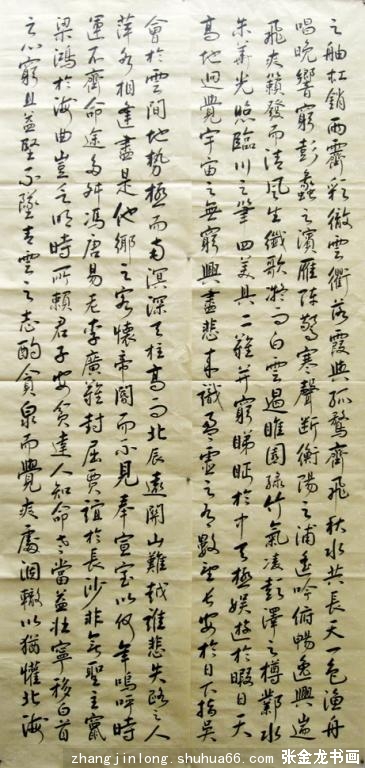 之舳虹銷雨霽彩徹雲衢落霞與孤鶩齊飛秋水共長天一色漁舟
唱晚響窮彭蠡之濱雁陣驚寒聲斷衡陽之浦遙吟俯暢逸興遄
飛爽籟發而清風生纖歌凝而白雲遏睢園綠竹氣凌彭澤之樽鄴水
朱華光照臨川之筆四美具二難并窮睇眄於中天極娛遊於暇日天
高地迥覺宇宙之無窮興盡悲來識盈虛之有數望長安於日下指吳
會於雲間地勢極而南溟深天柱高而北辰遠關山難越誰悲失路之人
萍水相逢盡是他鄉之客懷帝閽而不見奉宣室以何年嗚呼時
運不齊命途多舛馮唐易老李廣難封屈賈誼於長沙非無聖主竄
梁鴻於海曲豈乏明時所賴君子安貧達人知命老當益壯寧移白首
之心窮且益堅不墜青雲之志酌貪泉而覺爽處涸轍以猶懽北海
zhangjinlong.shuhua66.com 张金龙书画